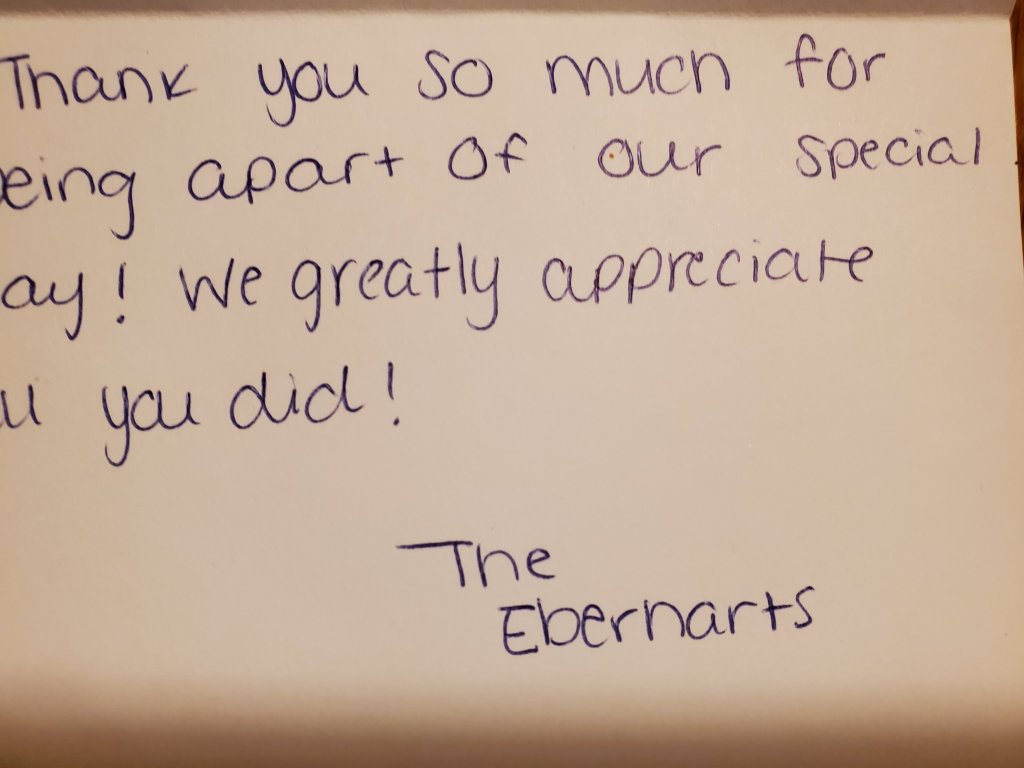 Thank you so much for
being apart of our special
day! We greatly appreciate
all you did!
The
Ebernarts